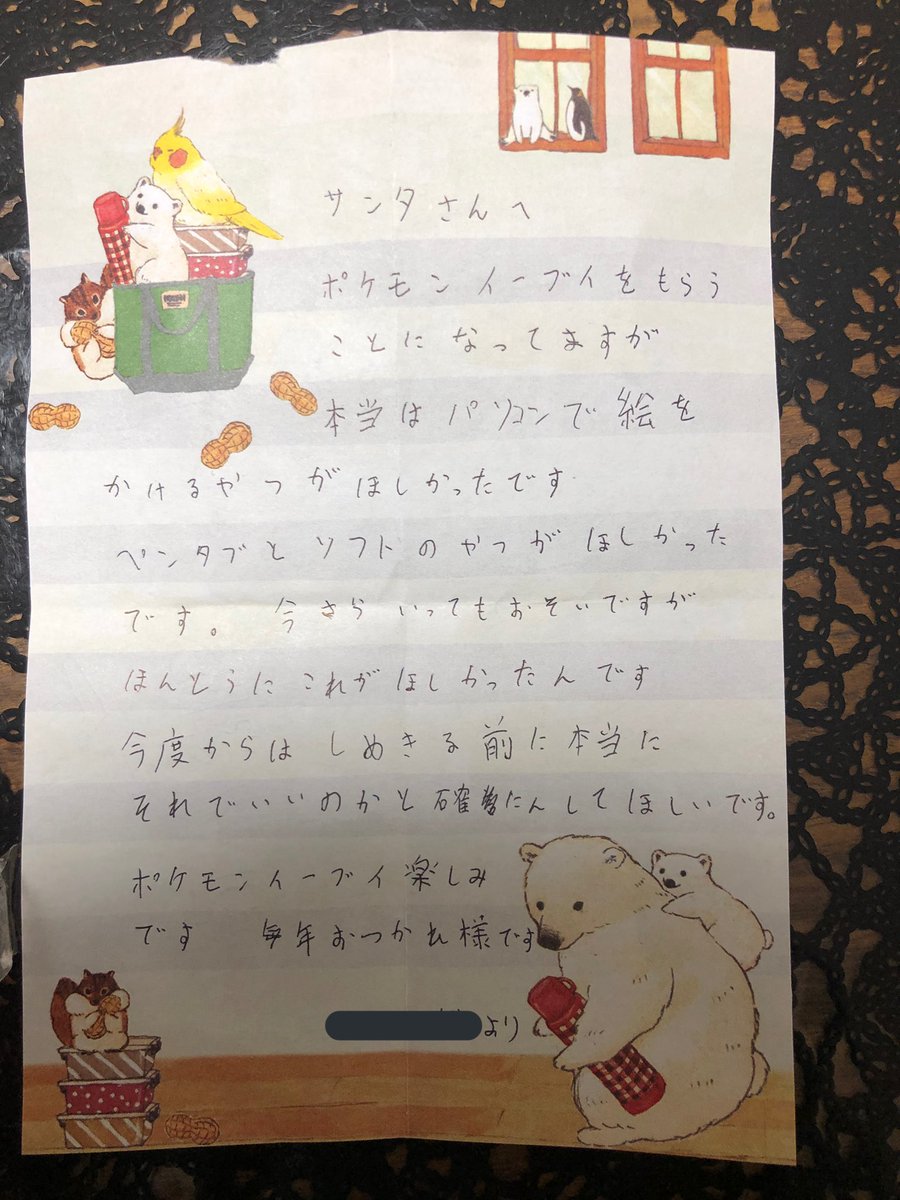 サンタさんへ
ポケモンイーブイをもらう
ことになってますが
本当はパソコンで絵を
かけるやつがほしかったです
ペンタブとソフトのやつがほしかった
です。 今さらいってもおそいですが
ほんとうにこれがほしかったんです
今度からはしめきる前に本当に
それでいいのかと確たんしてほしいです。
ポケモンイーブイ楽しみ
です 毎年おつかれ様です
より